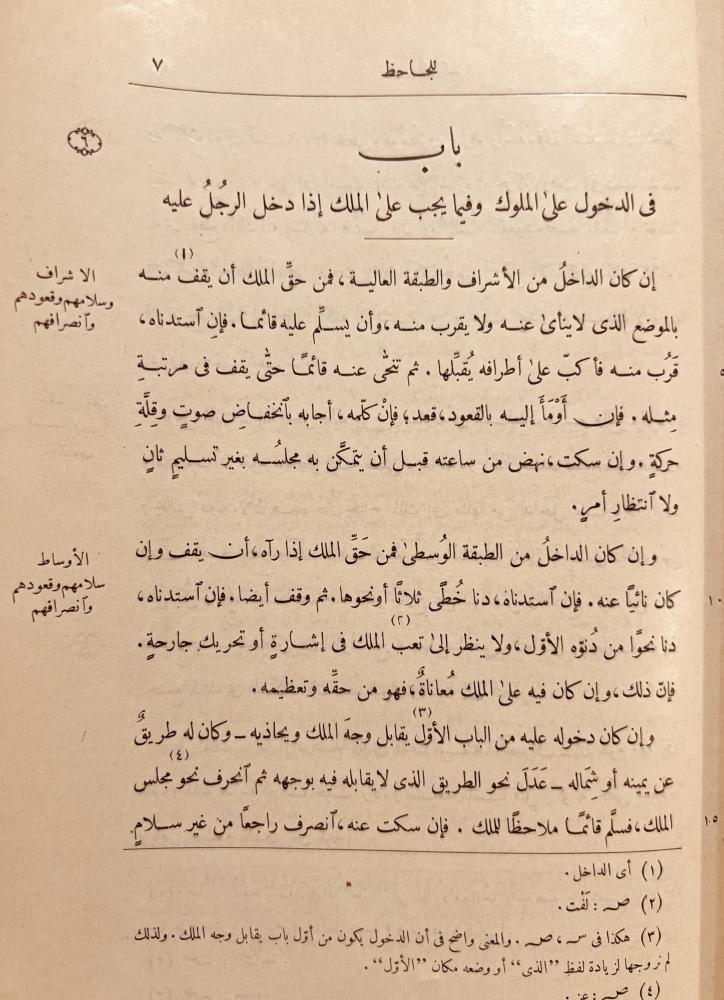 للجاحظ ٧
باب
٦
فى الدخول علىٰ الملوك وفيما يجب علىٰ الملك إذا دخل الرجُلُ عليه
إن كان الداخلُ من الأشراف والطبقة العالية، فمن حقِّ الملك أن يقف (١) منه
الاشراف
وسلامهم وقعودهم
وٱنصرافهم
بالموضع الذى لاينأىٰ عنه ولا يقرب منه، وأن يسلِّم عليه قائما. فإنِ ٱستدناه،
قَرُب منه فأكبّ علىٰ أطرافه يُقبِّلها. ثم تنحّٰى عنه قائمًا حتّٰى يقف فى مرتبةِ
مِثله. فإن أَوْمَأَ إليه بالقعود، قعد؛ فإنْ كلّمه، أجابه بٱنخفاضِ صوتٍ وقِلَّةِ
حركةٍ. وإن سكت، نهض من ساعته قبل أن يتمكَّن به مجلسُه بغير تسليمٍ ثانٍ
ولا ٱنتظارِ أمرٍ.
وإن كان الداخلُ من الطبقة الوُسطىٰ فمن حَقِّ الملك إذا رآه، أن يقف وإن
الأوساط
سلامهم وقعودهم
وٱنصرافهم
كان نائيًا عنه. فإن ٱستدناه، دنا خُطًى ثلاثًا أونحوها. ثم وقف أيضا. فإن ٱستدناه، ١٠
دنا نحوًا من دُنوّه الأوّل، ولا ينظر إلىٰ تعب (٢) الملك فى إشارةٍ أو تحريك جارحةٍ.
فإنّ ذلك، وإن كان فيه علىٰ الملك مُعاناةٌ، فهو من حقّه وتعظيمه.
وإن كان دخوله عليه من الباب الأوّل (٣) يقابل وجهَ الملك ويحاذيه ـ وكان له طريقٌ
عن يمينه أو شِمَاله ـ عَدَلَ نحو الطريق الذى لايقابله فيه بوجهه ثم ٱنحرف (٤) نحو مجلس
الملك، فسلَّم قائمًا ملاحظًا للملك. فإن سكت عنه، ٱنصرف راجعًا من غير سلامٍ ١٥
(١) أى الداخل.
(٢) صـ : لَفْت.
(٣) هكذا فى سـ، صـ. والمعنى واضح فى أن الدخول يكون من أوّل باب يقابل وجه الملك. ولذلك
لم نروجها لزيادة لفظ ”الذى“ أو وضعه مكان ”الأوّل“.
(٤) صـ : عنـ